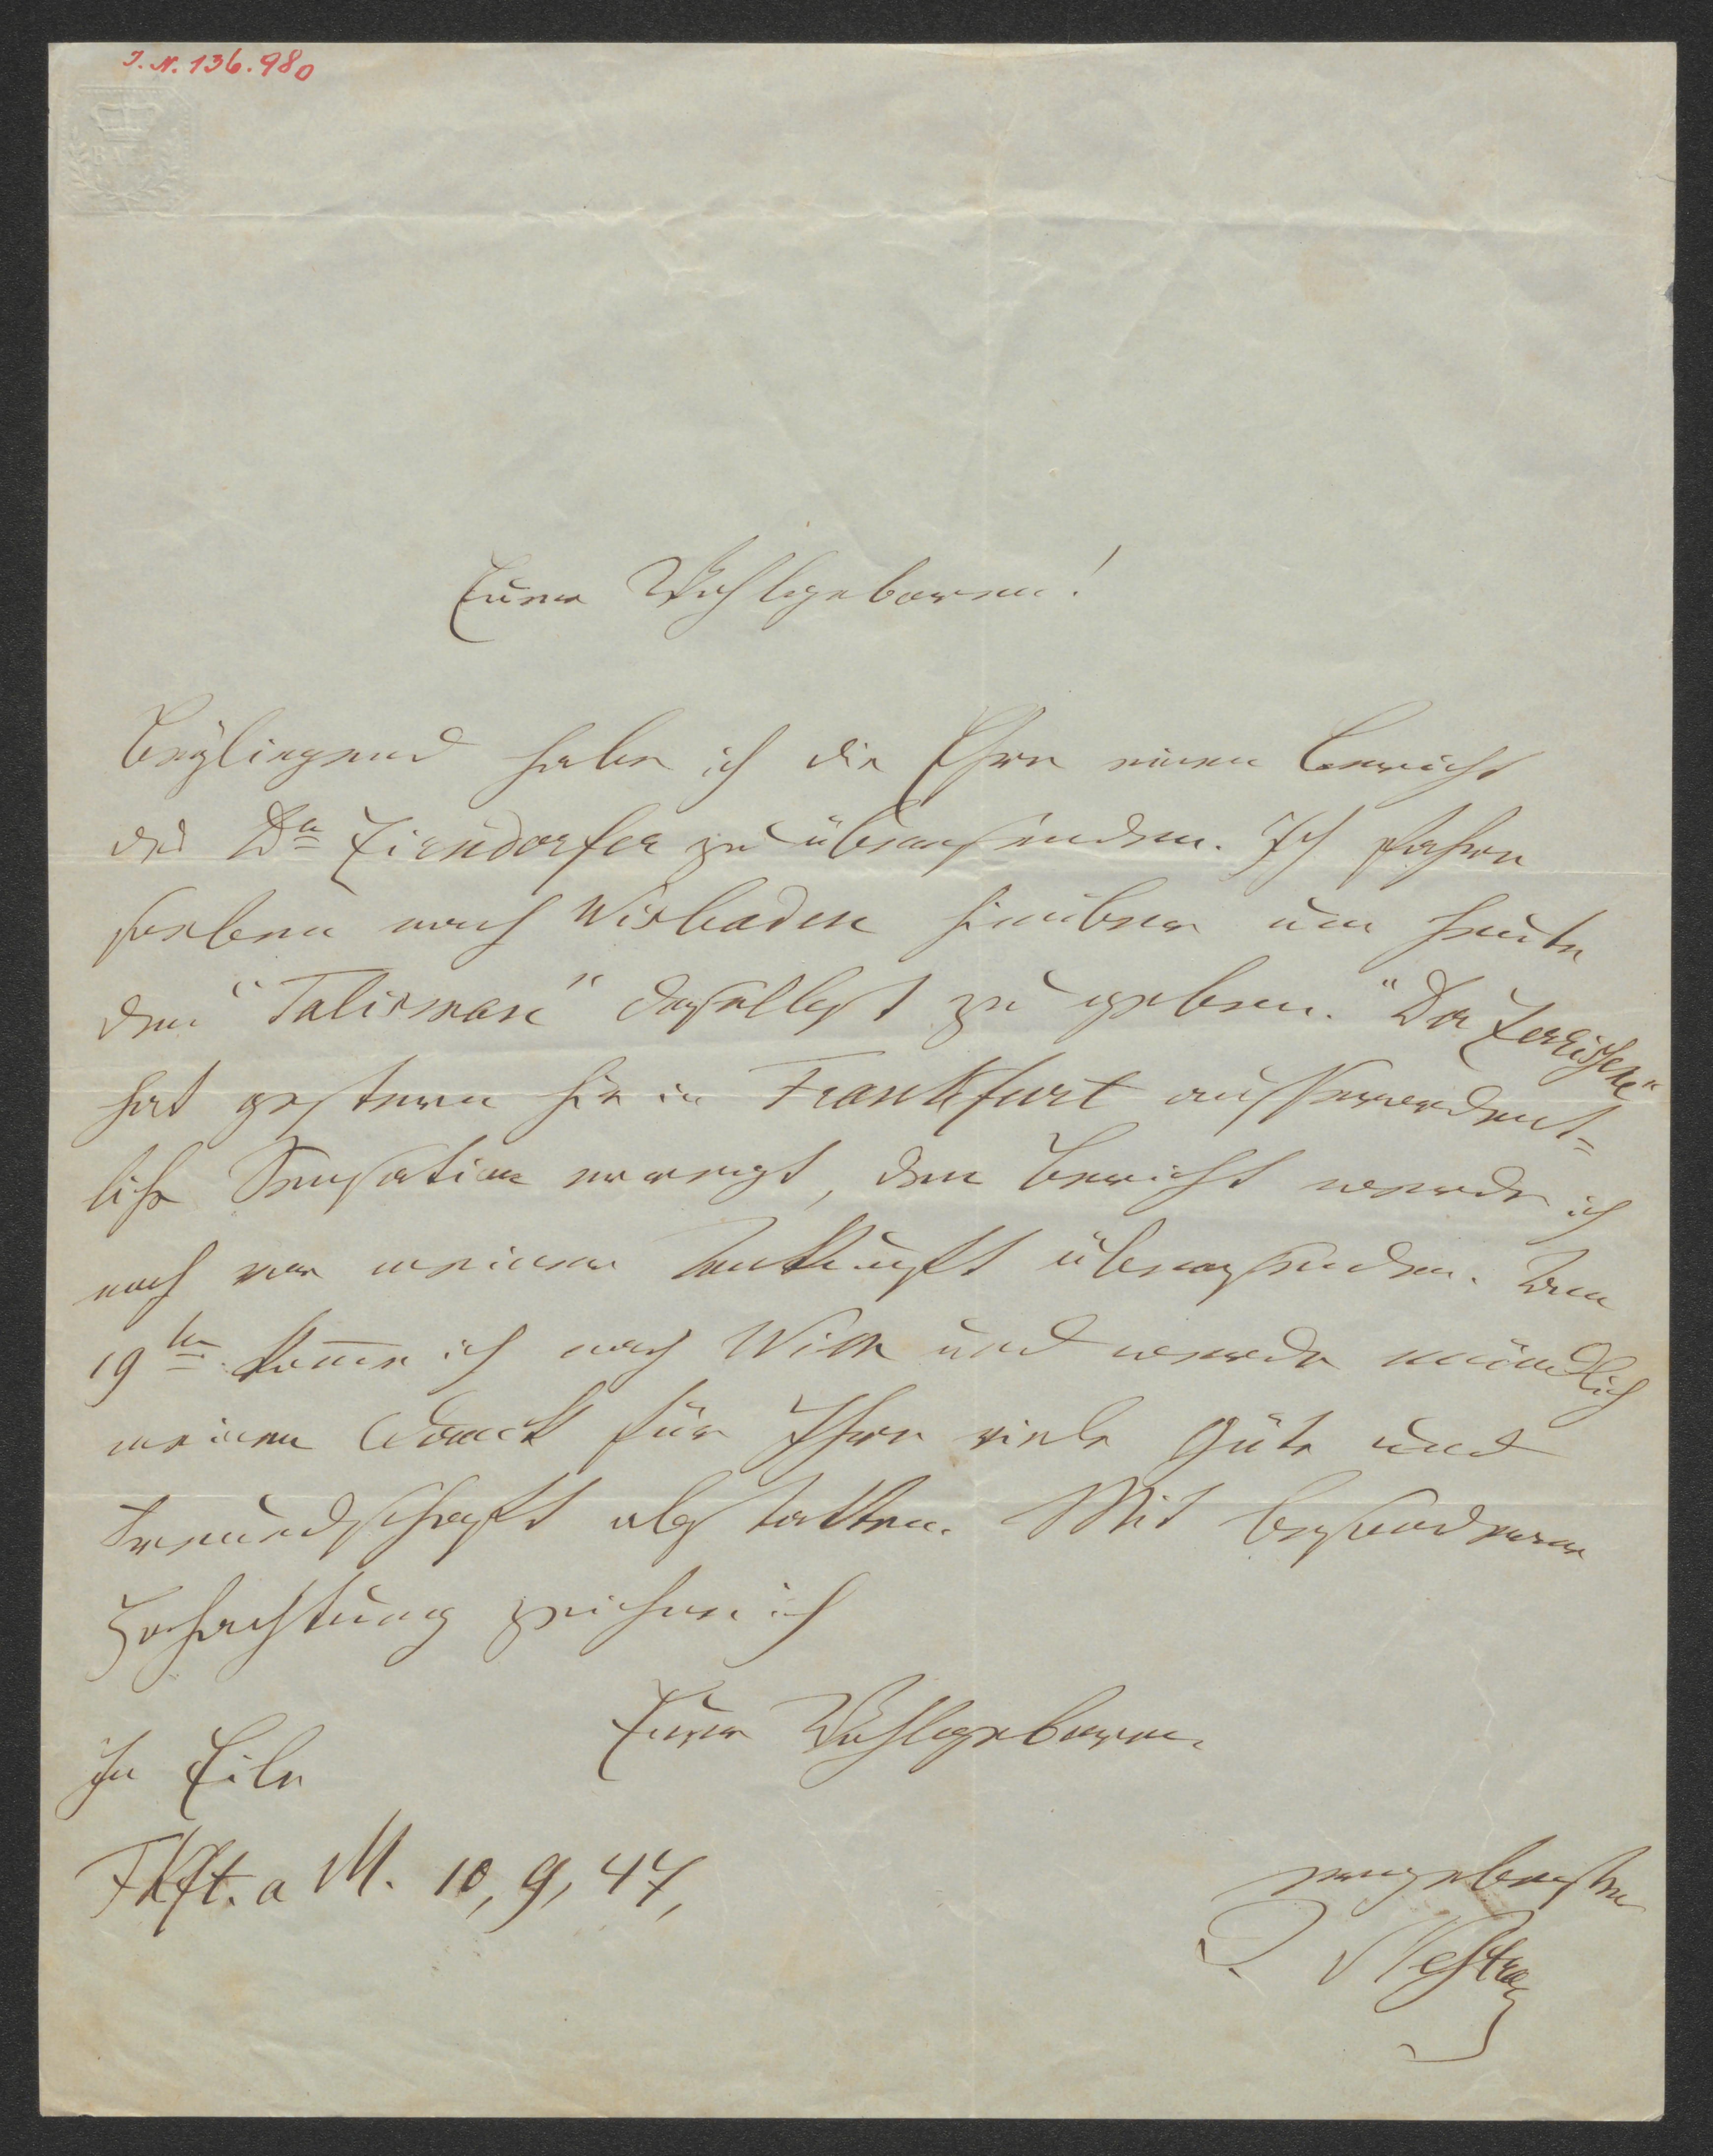 J. N. 136.980
BATH
Euer Wohlgeboren!
Beyliegend habe ich die Ehre einen Bericht
des Dr Zirndorfer zu übersenden. Ich fahre
soeben nach Wisbaden hinüber um heute
den "Talisman" daselbst zu geben. "Der Zerrissene"
hat gestern hir in Frankfurt ausserordent=
liche Sensation erregt, den Bericht werde ich
noch vor meiner Ankunft übersenden. Den
19ten kome ich nach Wien und werde mündlich
meinen Danck für Ihre viele Güte und
Freundschaft abstatten. Mit besonderer
Hochachtung zeichne ich
Euer Wohlgeboren
in Eile
Fkft. a M. 10, 9, 47,
ergebenster
J. Nestroy